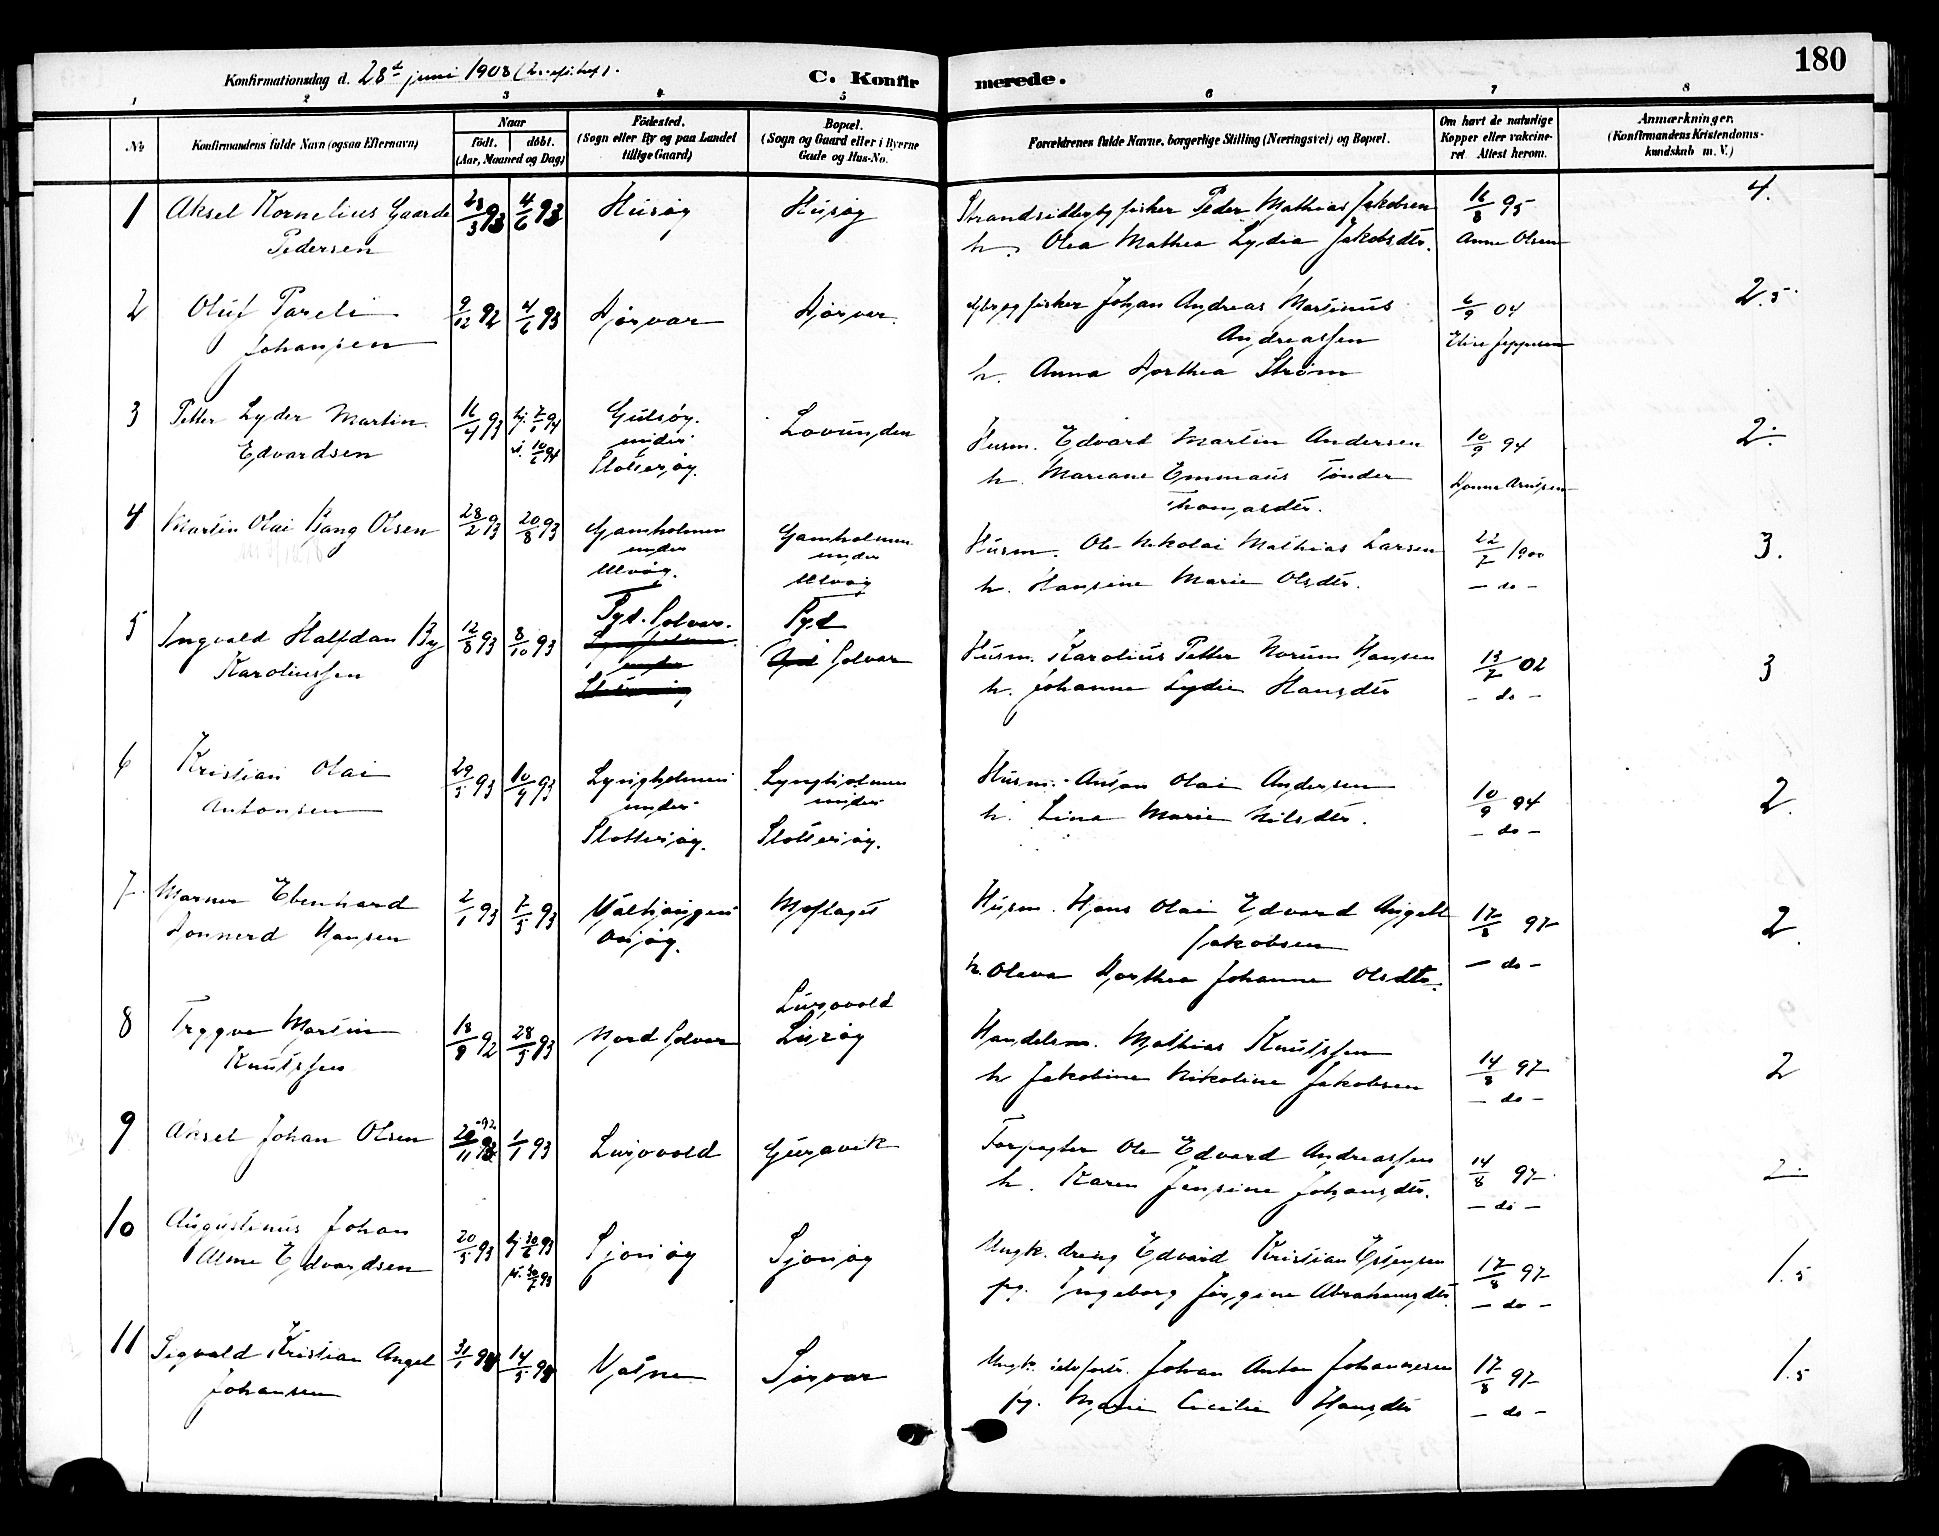 180
Konfirmationsdag d. 28de juni 1908
C. Konfirmerede.
1 2 3 4 5 6 7 8
No
Konfirmandens fulde Navn (ogsaa Efternavn)
Naar
født. døbt.
(Aar, Maaned og Dag)
Fødested.
(Sogn eller By og paa Landet
tillige Gaard)
Bopæl.
(Sogn og Gaard eller i Byerne
Gade og Hus-No.
Forældrenes fulde Navne, borgerlige Stilling (Næringsvei) og Bopæl.
Om havt de naturlige
Kopper eller vakcine-
ret Attest herom.
Anmærkninger.
(Konfirmandens Kristendoms-
kundskab m. V.)
1 Aksel Kornelius Gaarde 23/3 93 4/6 93 Husøy Husøy fisker Peder Mathias Jakobsen 16/8 95 4.
Pedersen h. Olea Mathea Lydia Jakobsdtr. Anne Olsen
2 Oluf Pareli 9/12 92 4/6 93 Hjørvar Hjørver fisker Johan Andreas Martinus 6/9 04 2.5
Johansen Andreassen Elise Jeppesen
h. Anna Dorthea Strøm
3 Petter Lyder Martin 16/4 93 hj. 7/1 94 Gulsøy Lovunden Husm. Edvard Martin Andersen 10/9 94 2.
Edvardsen i. 10/6 94 under h. Mariane Emmaus Tønder
Slotterøy. Thomasdtr.
4 Martin Olai Bang Olsen 28/2 93 20/8 93 Gamholmen Gamholmen Husm. Ole Nikolai Mathias Larsen 22/7 1900 3.
under under h. Hansine Marie Olsdtr. - do -
Alvøy. Alvøy
5 Ingvald Halfdan By 12/8 93 8/10 93 Syd. Solvær. Syd Solvær Husm. Karolius Petter Norum Hansen 13/7 02 3
Karoliussen under h. Johanne Lydie Hansdtr - do -
6 Kristian Olai 29/5 93 10/9 93 Lyngholmen Lyngholmen Husm. Anton Olai Andersen 10/9 94 2.
Antonsen under under h. Lina Marie Nilsdtr. - do -
Slotterøy. Slotterøy.
7 Marner Eberhard 2/1 93 7/5 93 Onøy. Moflaget Husm. Hans Olai Edvard Angell 17/8 97 2.
Hansen Jakobsen
h. Oleva Dorthea Johanne Olsdtr. - do -
8 Trygve Martin 18/9 92 28/5 93 Nord Solvær Lurøvold Handelsm. Mathias Knutssen 14/8 97 2
Knutssen Lurøy h Jakobine Nikoline Jakobsen - do -
9 Aksel Johan Olsen 29/11 92 1/1 93 Lurøvold Guravik Forpagter Ole Edvard Andreassen 14/8 97 2.
h. Karen Jensine Johansdtr. - do -
10 Augustinus Johan 20/5 93 hj. 30/6 93 Sjonøy Sjonøy Ungk. dreng Edvard Kristian Espensen 17/8 97 1.5
Alme Edvardsen 30/7 93 pg. Ingeborg Jørgine Abrahamsdtr. - do -
11 Sigvald Kristian Angel 31/1 93 14/5 93 Vatne Sørvær Ungk. Johan Anton Johannesen 17/8 97 1.5
Johansen pg. Marie Cicilie Hansdtr - do -